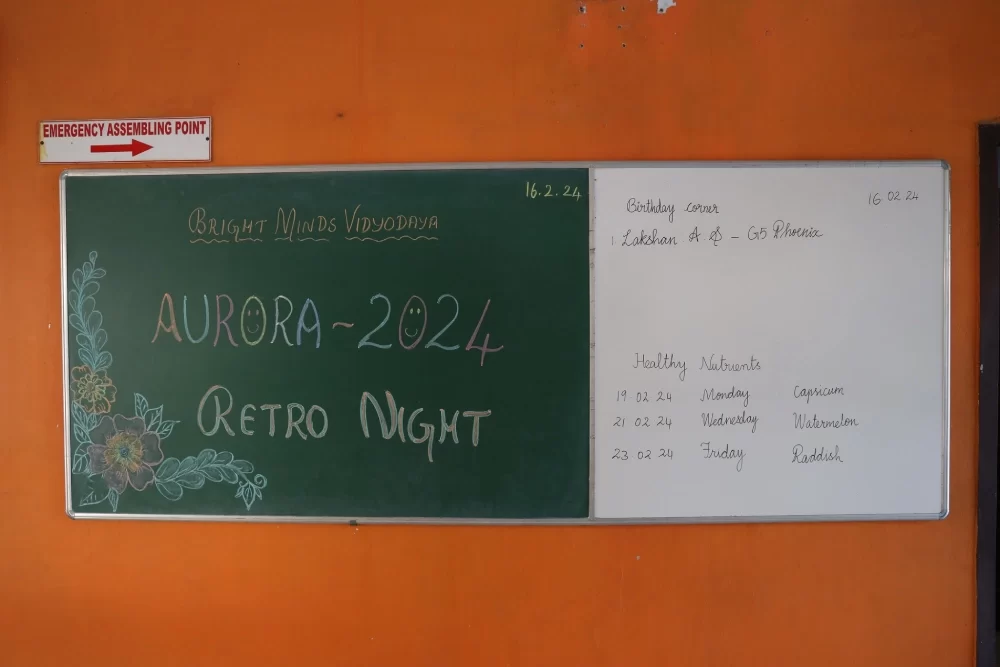 EMERGENCY ASSEMBLING POINT
16.2.24
BRIGHT MINDS VIDYODAYA
AURORA ~ 2024
RETRO NIGHT
16 02 24
Birthday corner
1. Lakshan A S - G5 Phoenix
Healthy Nutrients
19 02 24 Monday Capsicum
21 02 24 Wednesday Watermelon
23 02 24 Friday Raddish